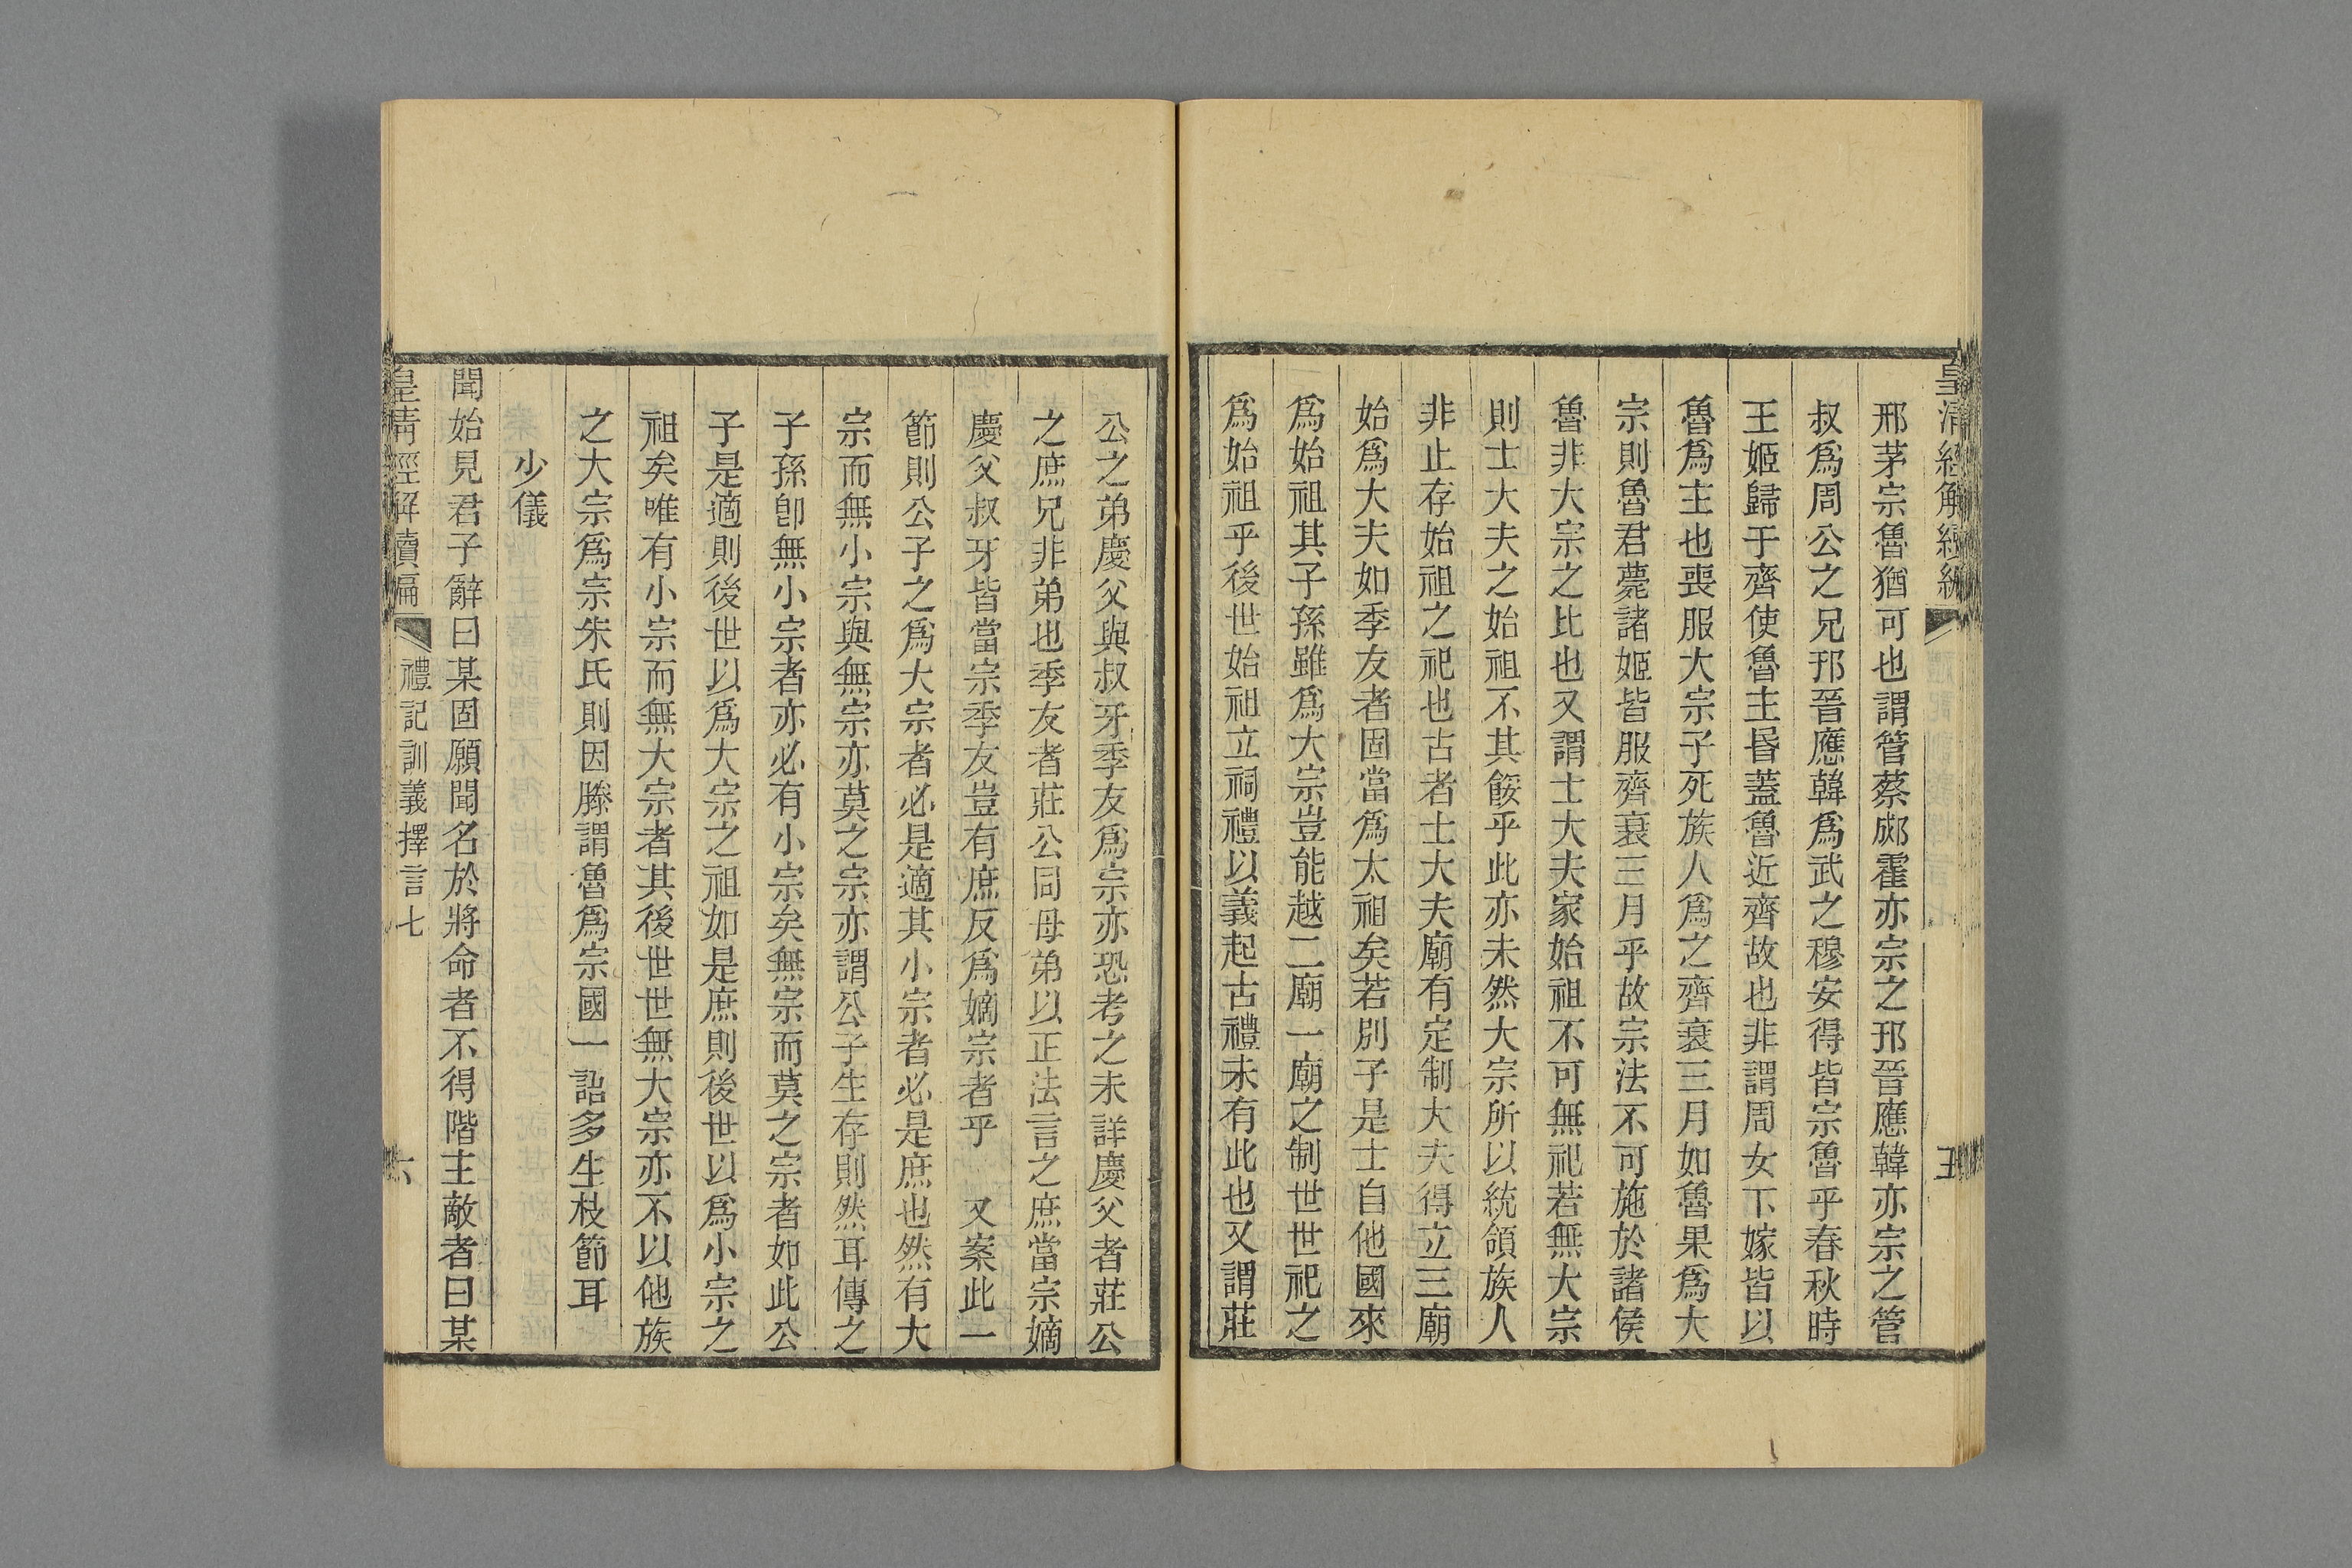 邢茅宗魯猶可也謂管蔡郕霍亦宗之邘晉應韓亦宗之管
叔爲周公之兄邘晉應韓爲武之穆安得皆宗魯乎春秋時
王姬歸于齊使魯主昬蓋魯近齊故也非謂周女下嫁皆以
魯爲主也喪服大宗子死族人爲之齊衰三月如魯果爲大
宗則魯君薨諸姬皆服齊衰三月乎故宗法不可施於諸侯
魯非大宗之比也又謂士大夫家始祖不可無祀若無大宗
則士大夫之始祖不其餒乎此亦未然大宗所以統領族人
非止存始祖之祀也古者士大夫廟有定制大夫得立三廟
始爲大夫如季友者固當爲太祖矣若別子是士自他國來
爲始祖其子孫雖爲大宗豈能越二廟一廟之制世世祀之
爲始祖乎後世始祖立祠禮以義起古禮未有此也又謂莊
公之弟慶父與叔牙季友爲宗亦恐考之未詳慶父者莊公
之庶兄非弟也季友者莊公同母弟以正法言之庶當宗嫡
慶父叔牙皆當宗季友豈有庶反爲嫡宗者乎　又案此一
節則公子之爲大宗者必是適其小宗者必是庶也然有大
宗而無小宗與無宗亦莫之宗亦謂公子生存則然耳傳之
子孫卽無小宗者亦必有小宗矣無宗而莫之宗者如此公
子是適則後世以爲大宗之祖如是庶則後世以爲小宗之
祖矣唯有小宗而無大宗者其後世世無大宗亦不以他族
之大宗爲宗朱氏則因滕謂魯爲宗國一詔多生枝節耳
少儀
聞始見君子辭曰某固願聞名於將命者不得階主敵者曰某
皇清經解續編　禮記訓義擇言七　六